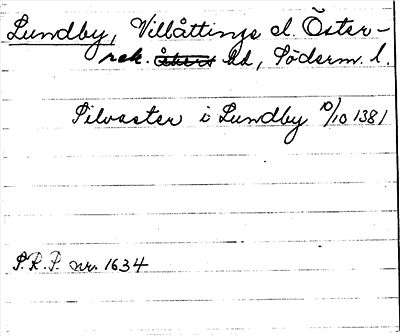 Lundby, Villåttinge el. Öster-
rek. hd, Söderm. l.
Silvaster i Lundby 10/10 1381
S.R.P. nr. 1634